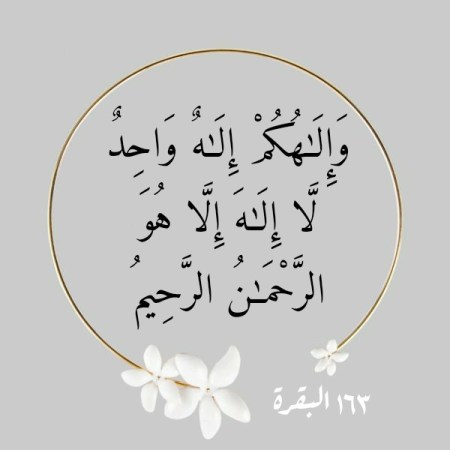 وَإِلَٰهُكُمْ إِلَٰهٌ وَاحِدٌ
لَّا إِلَٰهَ إِلَّا هُوَ
الرَّحْمَٰنُ الرَّحِيمُ
١٦٣ البقرة